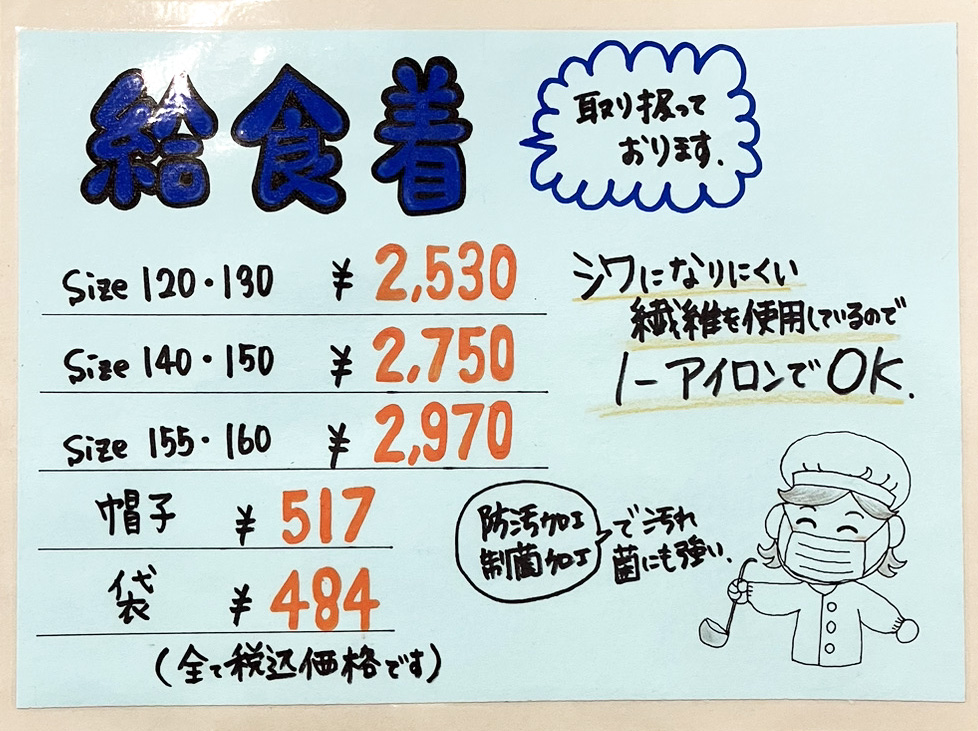 給食着
取り扱って
おります.
Size 120・130 ¥ 2,530
Size 140・150 ¥ 2,750
Size 155・160 ¥ 2,970
帽子 ¥ 517
袋 ¥ 484
(全て税込価格です)
シワになりにくい
繊維を使用しているので
ノーアイロンでOK.
防汚加工
制菌加工
で汚れ
菌にも強い.